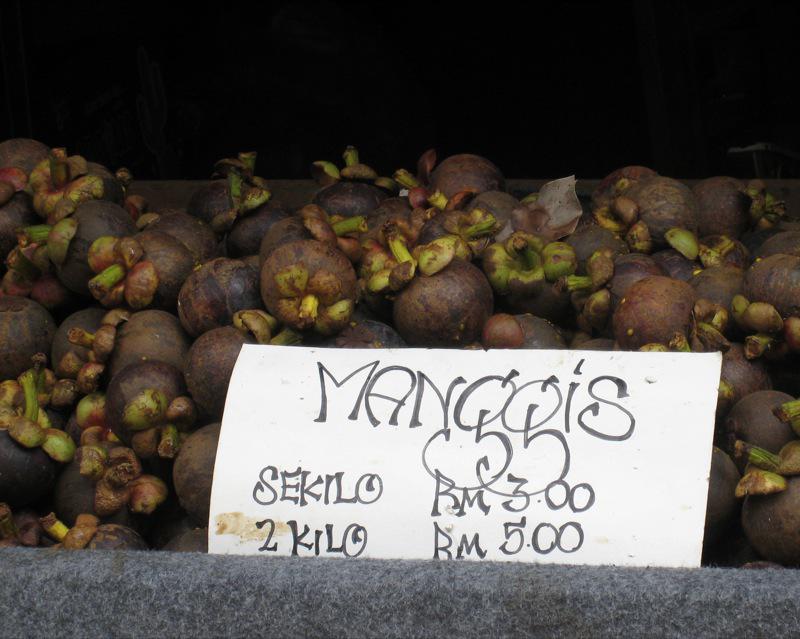 MANGGIS
SEKILO RM 3.00
2 KILO RM 5.00